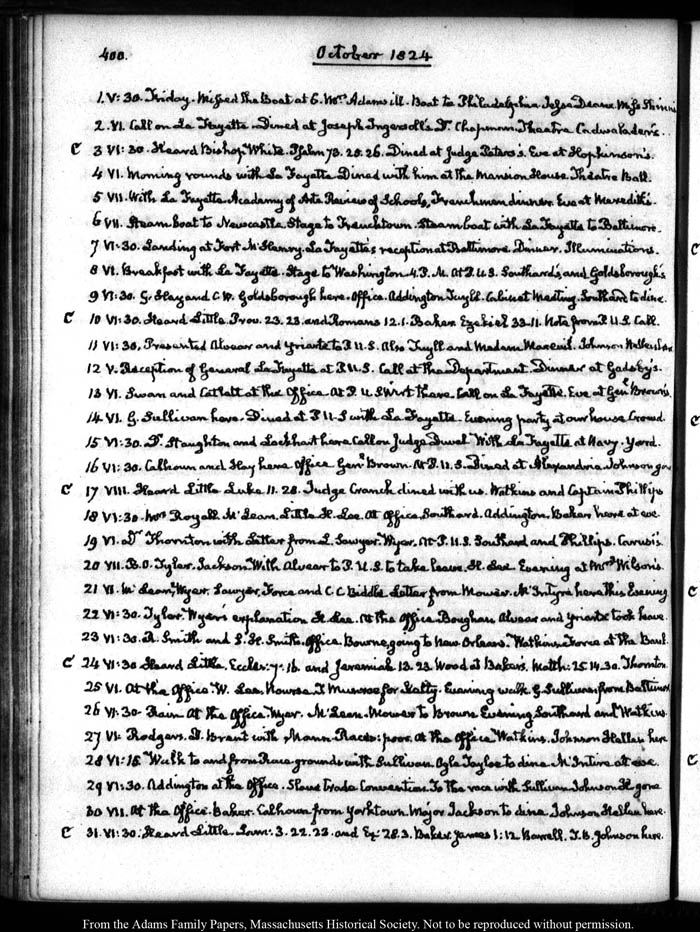 400.
October 1824
1. V:30. Friday. Missed the Boat at 6. Mrs Adams ill. Boat to Philadelphia.
2. VI. Call on La Fayette. Dined at Joseph Ingersoll's D. Chapman. Theatre Cadwalader's.
C 3 VI:30. Heard Bishop White. Psalm 73. 25. 26. Dined at Judge Peters's. Eve at Hopkinson's.
4 VI. Morning rounds with La Fayette. Dined with him at the Mansion House. Theatre Ball.
5 VII. With La Fayette. Academy of Arts. Review of Schools, Frenchmen dinner. Eve at Meredith's.
6 VII. Steam boat to Newcastle. Stage to Frenchtown. Steam boat with La Fayette to Baltimore.
7 VI:30. Landing at Fort McHenry. La Fayette's reception at Baltimore. Dinner. Illuminations.
8 VI. Breakfast with La Fayette. Stage to Washington 4. P.M. At P.U.S. Southard's and Goldsborough's
9 VI:30. G. Hay and C. W. Goldsborough here. Office. Addington Tuyll. Cabinet Meeting. Southard to dine.
C 10 VI:30. Heard Little Prov. 23. 23. and Romans 12.1. Baker Ezekiel 33.11. Note from P.U.S. Call.
11 VI:30. Presented Alvear and Yriarte to P.U.S. Also Tuyll and Madame Mareuil. Johnson
12 V. Reception of General La Fayette at P.U.S. Call at the Department. Dinner at Gadsby's.
13 VI. Swan and Catlett at the Office. At P.U.S. Wirt there. Call on La Fayette. Eve at Genl Brown's
14 VI. G. Sullivan here. Dined at P.U.S with La Fayette. Evening party at our house Crowd.
15 VI:30. Dr. Staughton and Lockhart here. Call on Judge Duval. With La Fayette at Navy-Yard.
16 VI:30. Calhoun and Hay here. Office Genl Brown. At P.U.S. Dined at Alexandria. Johnson gone
C 17 VIII. Heard Little Luke 11. 28. Judge Cranch dined with us. Watkins and Captain Phillips
18 VI:30. Mrs Royall. McLean. Little. H. Lee. At Office. Southard. Addington. Baker here at eve
19 VI. Dr Thornton with Letter from L. Sawyer. Wyer. At P.U.S. Southard and Phillips. Carusi's
20 VII. B.O. Tyler. Jackson. With Alvear to P.U.S. to take leave. H. Lee. Evening at Mrs Wilson's.
21 VI. McLean, Wyer, Sawyer, Force and C.C. Biddle. Letter from Mower. McIntyre here this Evening
22 VI:30. Tyler. Wyer's explanation. H. Lee. At the Office. Boughan. Alvear and Yriarte took leave.
23 VI:30. D. Smith and S. H. Smith. Office. Bowne, going to New Orleans. Watkins. Force at the Bank.
C 24 VI:30 Heard Little. Eccles: 7. 16. and Jeremiah 13. 23. Wood at Bakers. Matth: 25. 14. 30. Thornton
25 VI. At the Office. W. Lee. Nourse. T. Munroe for Kalty. Evening walk. G. Sullivan from Baltimore
26 VI:30. Rain. At the Office. Wyer. McLean. Mower to Brown. Evening Southard and Watkins.
27 VI. Rodgers. D. Brent with Mann. Races: poor. At the Office. Watkins. Johnson Hellen here
28 VI:15. Walk to and from Race grounds with Sullivan. Ogle Tayloe to dine. McIntire at eve.
29 VI:30. Addington at the Office. Slave trade Convention. To the race with Sullivan. Johnson H. gone
30 VII. At the Office. Baker. Calhoun from Yorktown. Major Jackson to dine. Johnson Hellen here.
C 31. VI:30. Heard Little. Lam: 3. 22. 23. and Ez: 28. 3. Baker James 1:12. Barrell. T.B. Johnson here.
From the Adams Family Papers, Massachusetts Historical Society. Not to be reproduced without permission.